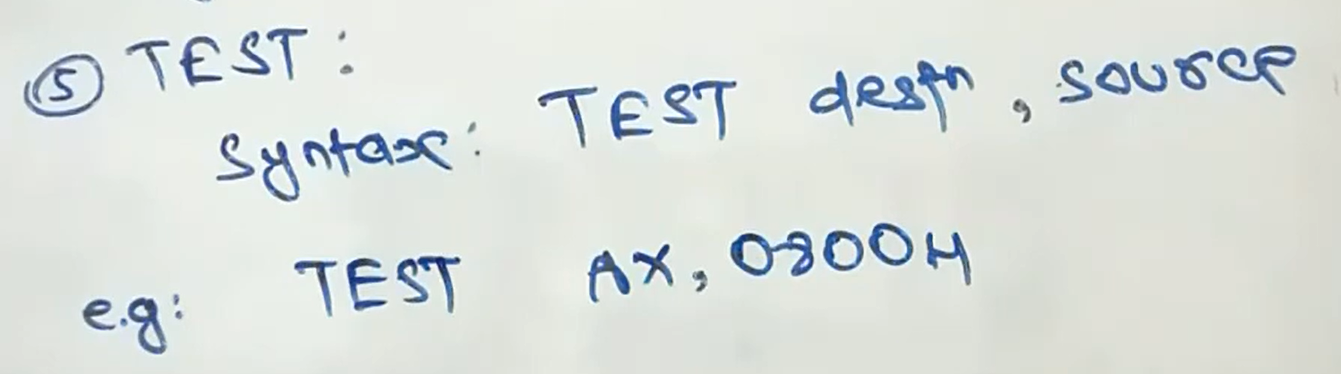 ⑤ TEST:
Syntax: TEST destn, source
e.g: TEST AX, 0800H